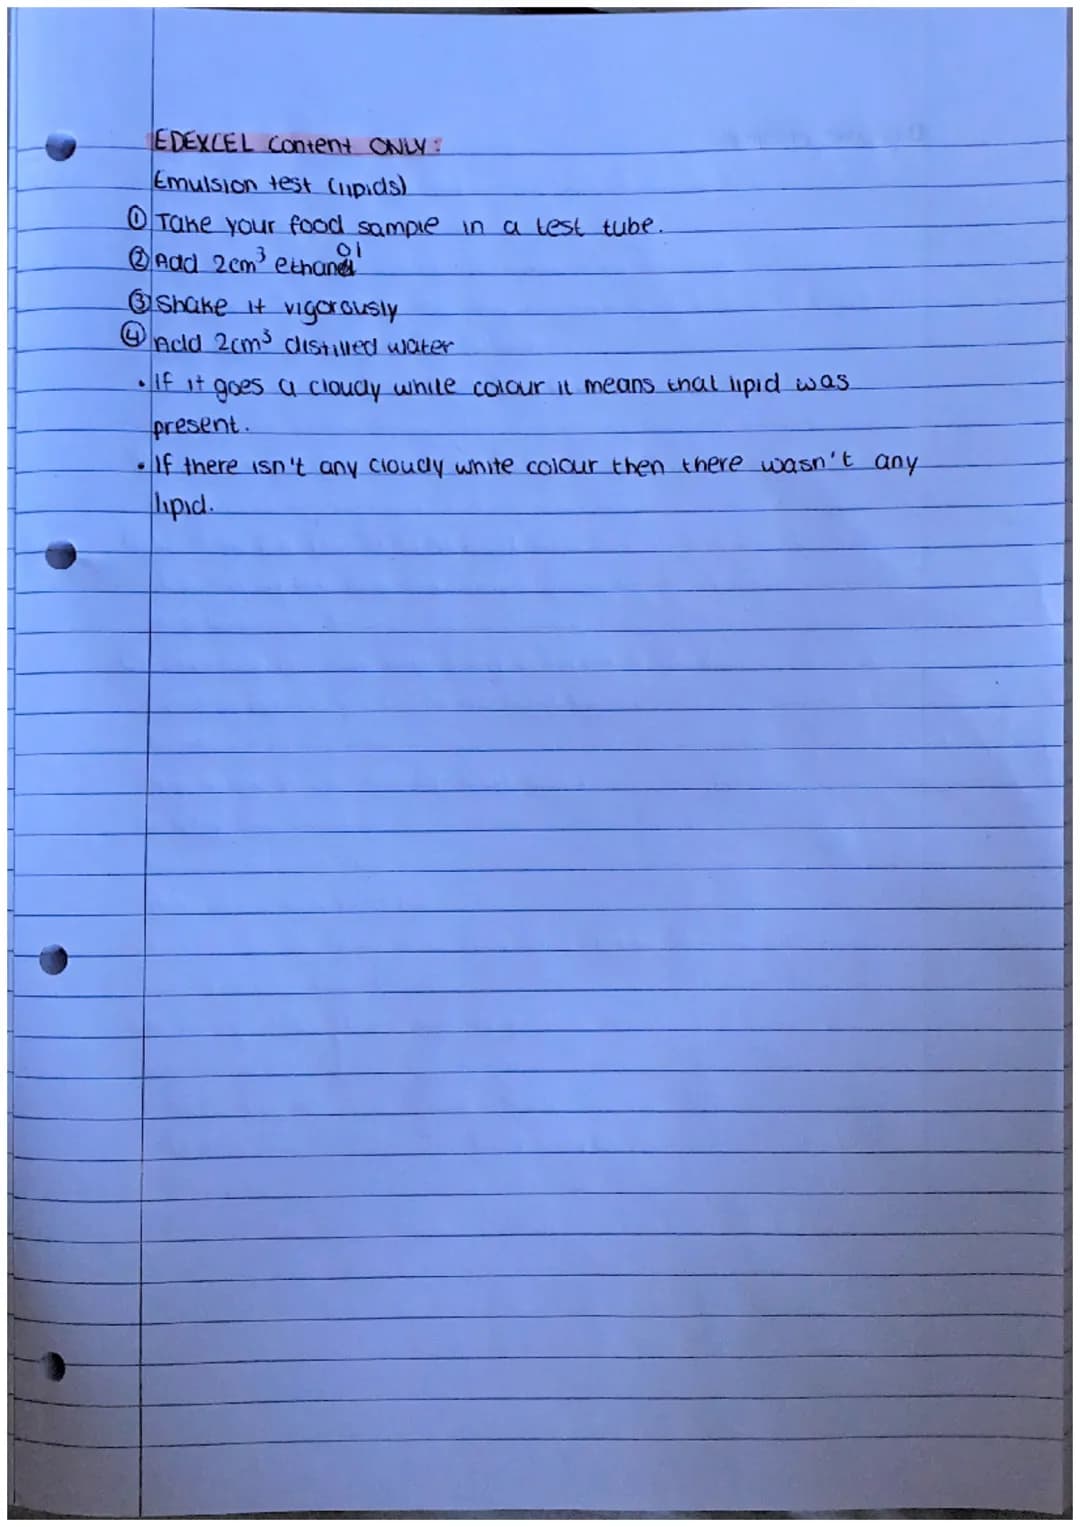 EDEXCEL Content ONLY:
Emulsion test (lipids)
① Take your food sample in a test tube.
② Add 2cm³ ethanol
③ Shake it vigorously
④ Add 2cm³ distilled water
• If it goes a cloudy white colour it means that lipid was
present.
• If there isn't any cloudy white colour then there wasn't any
lipid.